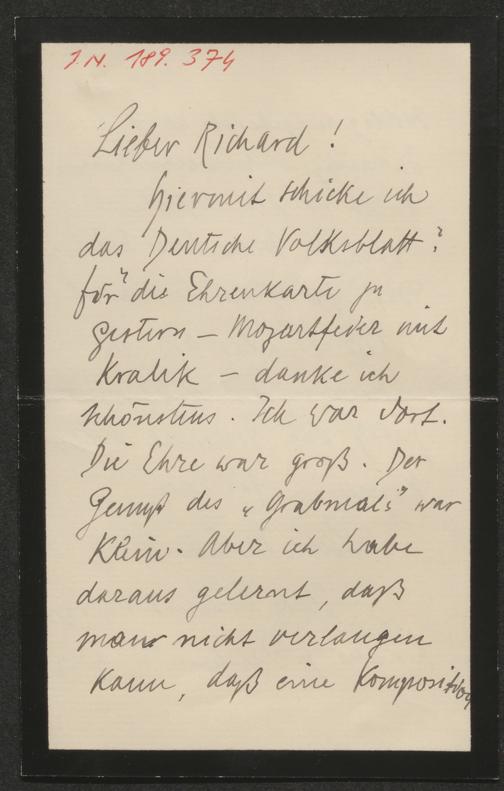 I N. 189.374
Lieber Richard!
Hiermit schicke ich
das Deutsche Volksblatt.
für die Ehrenkarte zu
gestern – Mozartfeier mit
Kralik – danke ich
schönstens. Ich war dort.
Die Ehre war groß. Der
Genuß des „Grabmals" war
klein. Aber ich habe
daraus gelernt, daß
man nicht verlangen
kann, daß eine Komposition